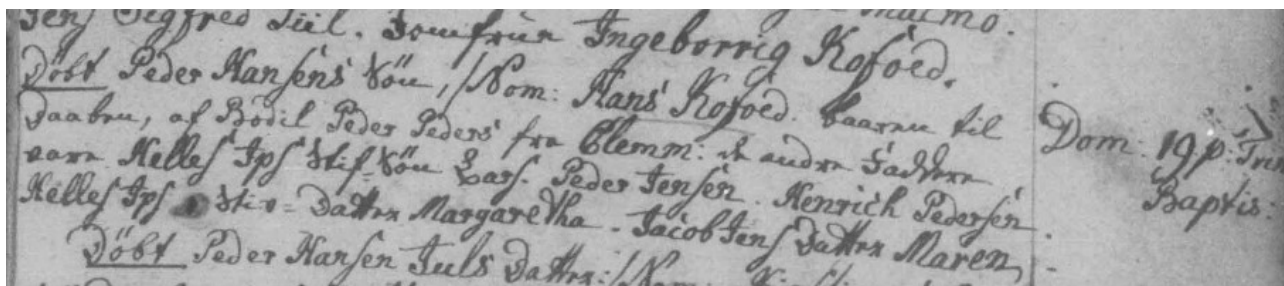 Jens Segfred Tiil. Jomfrue Ingeborrig Kofoed.
Döbt Peder Hansens Sön, /Nom: Hans Kofoed. baaren til
Daaben, af Bodil Peder Peders fra Clemm: de andre Faddere
vare Helles Ips Stif-Sön Lars. Peder Jensen. Henrich Pedersen.
Helles Ips Stiv-Datter Margaretha - Jacob Jens Datter Maren,
Döbt Peder Hansen Juls Datter:/Nom:
Dom: 19 p: Trin
Baptis: